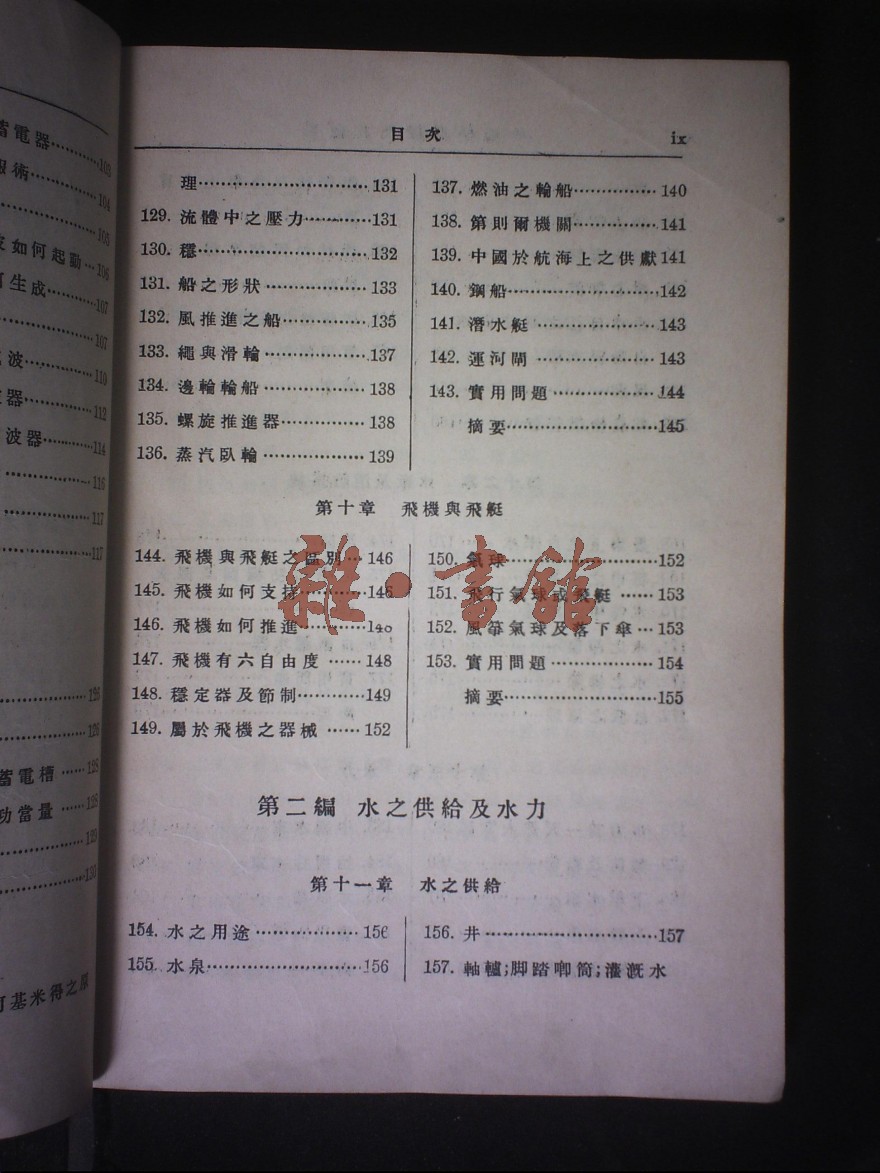 蓄電器……103
104
105
如何起動…106
生成……107
107
波……110
器……112
波器……114
116
117
117
126
126
蓄電槽……128
功當量……128
129
130
基米得之原
目次 ix
理……131
129. 流體中之壓力……131
130. 穩……132
131. 船之形狀……133
132. 風推進之船……135
133. 繩與滑輪……137
134. 邊輪輪船……138
135. 螺旋推進器……138
136. 蒸汽臥輪……139
137. 燃油之輪船……140
138. 第則爾機關……141
139. 中國於航海上之供獻141
140. 鋼船……142
141. 潛水艇……143
142. 運河閘……143
143. 實用問題……144
摘要……145
第十章 飛機與飛艇
144. 飛機與飛艇之區別…146
145. 飛機如何支持……146
146. 飛機如何推進……148
147. 飛機有六自由度……148
148. 穩定器及節制……149
149. 屬於飛機之器械……152
150. 氣球……152
151. 飛行氣球或飛艇……153
152. 風箏氣球及落下傘…153
153. 實用問題……154
摘要……155
雜·書館
第二編 水之供給及水力
第十一章 水之供給
154. 水之用途……156
155. 水泉……156
156. 井……157
157. 軸轤;脚踏唧筒;灌溉水